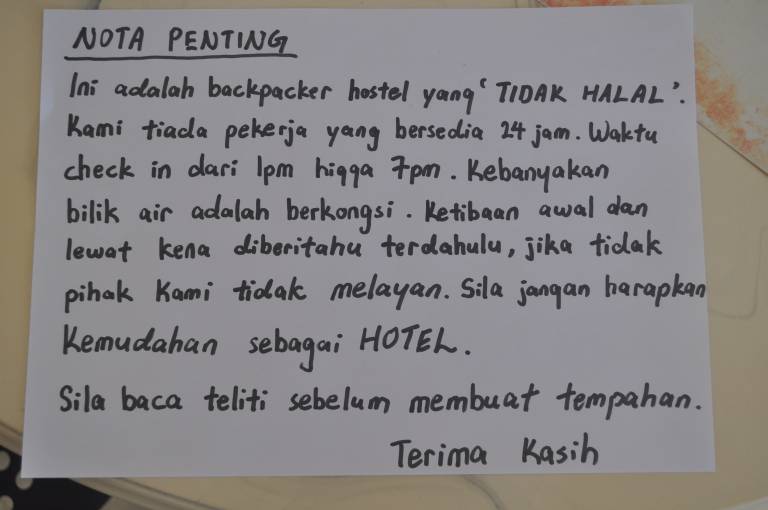 NOTA PENTING
Ini adalah backpacker hostel yang 'TIDAK HALAL'.
Kami tiada pekerja yang bersedia 24 jam. Waktu
check in dari 1pm higga 7pm. Kebanyakan
bilik air adalah berkongsi. Ketibaan awal dan
lewat kena diberitahu terdahulu, jika tidak
pihak Kami tidak melayan. Sila jangan harapkan
Kemudahan sebagai HOTEL.
Sila baca teliti sebelum membuat tempahan.
Terima Kasih